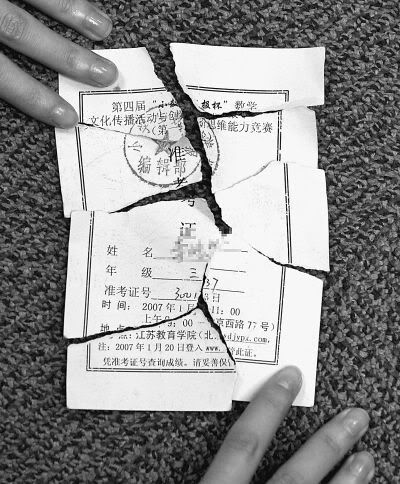 第四届"小 杯"数学
文化传播活动与创 思维能力竞赛
(第
编辑部
准考证
姓 名
年 级 三
准考证号 300 37
时间: 2007年1月 日
上午9:00— 11:00
地点:江苏教育学院(北京西路77号)
注: 2007年1月20日登入www. djypx.com,
凭准考证号查询成绩。请妥善保 此证。